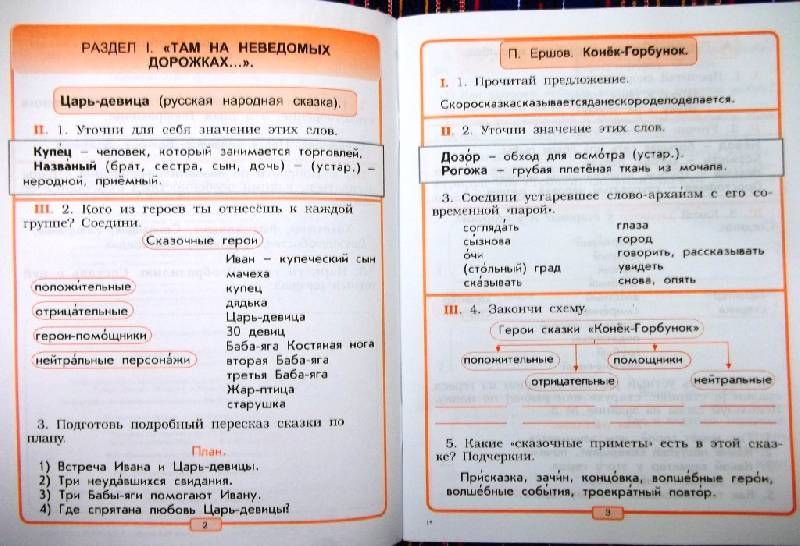 РАЗДЕЛ I. «ТАМ НА НЕВЕДОМЫХ
ДОРОЖКАХ...».
Царь-девица (русская народная сказка).
II. 1. Уточни для себя значение этих слов.
Купе́ц – человек, который занимается торговлей.
Назва́ный (брат, сестра, сын, дочь) – (устар.) –
неродной, приёмный.
III. 2. Кого из героев ты отнесёшь к каждой
группе? Соедини.
Сказочные герои
Иван – купеческий сын
мачеха
положи́тельные купец
дядька
отрица́тельные Царь-девица
герои-помо́щники 30 девиц
Баба-яга Костяная нога
нейтра́льные персона́жи вторая Баба-яга
третья Баба-яга
Жар-птица
старушка
3. Подготовь подробный пересказ сказки по
плану.
План.
1) Встреча Ивана и Царь-девицы.
2) Три неуда́вшихся свидания.
3) Три Бабы-яги помогают Ивану.
4) Где спрятана любовь Царь-девицы?
2
П. Ершов. Конёк-Горбунок.
I. 1. Прочитай предложение.
Скоросказкасказываетсяданескородело­делается.
II. 2. Уточни значение этих слов.
Дозо́р – обход для осмо́тра (устар.).
Рогожа – грубая плетёная ткань из мочала.
3. Соедини устаревшее слово-архаи́зм с его со-
временной «парой».
согляда́ть глаза
сы́знова город
о́чи говорить, рассказывать
(сто́льный) град увидеть
ска́зывать снова, опять
III. 4. Закончи схему.
Герои сказки «Конёк-Горбунок»
положи́тельные помо́щники
отрица́тельные нейтра́льные
5. Какие «сказочные приметы» есть в этой сказ-
ке? Подчеркни.
Присказка, зачи́н, концо́вка, волше́бные геро́и,
волше́бные события, троекра́тный повтор.
3